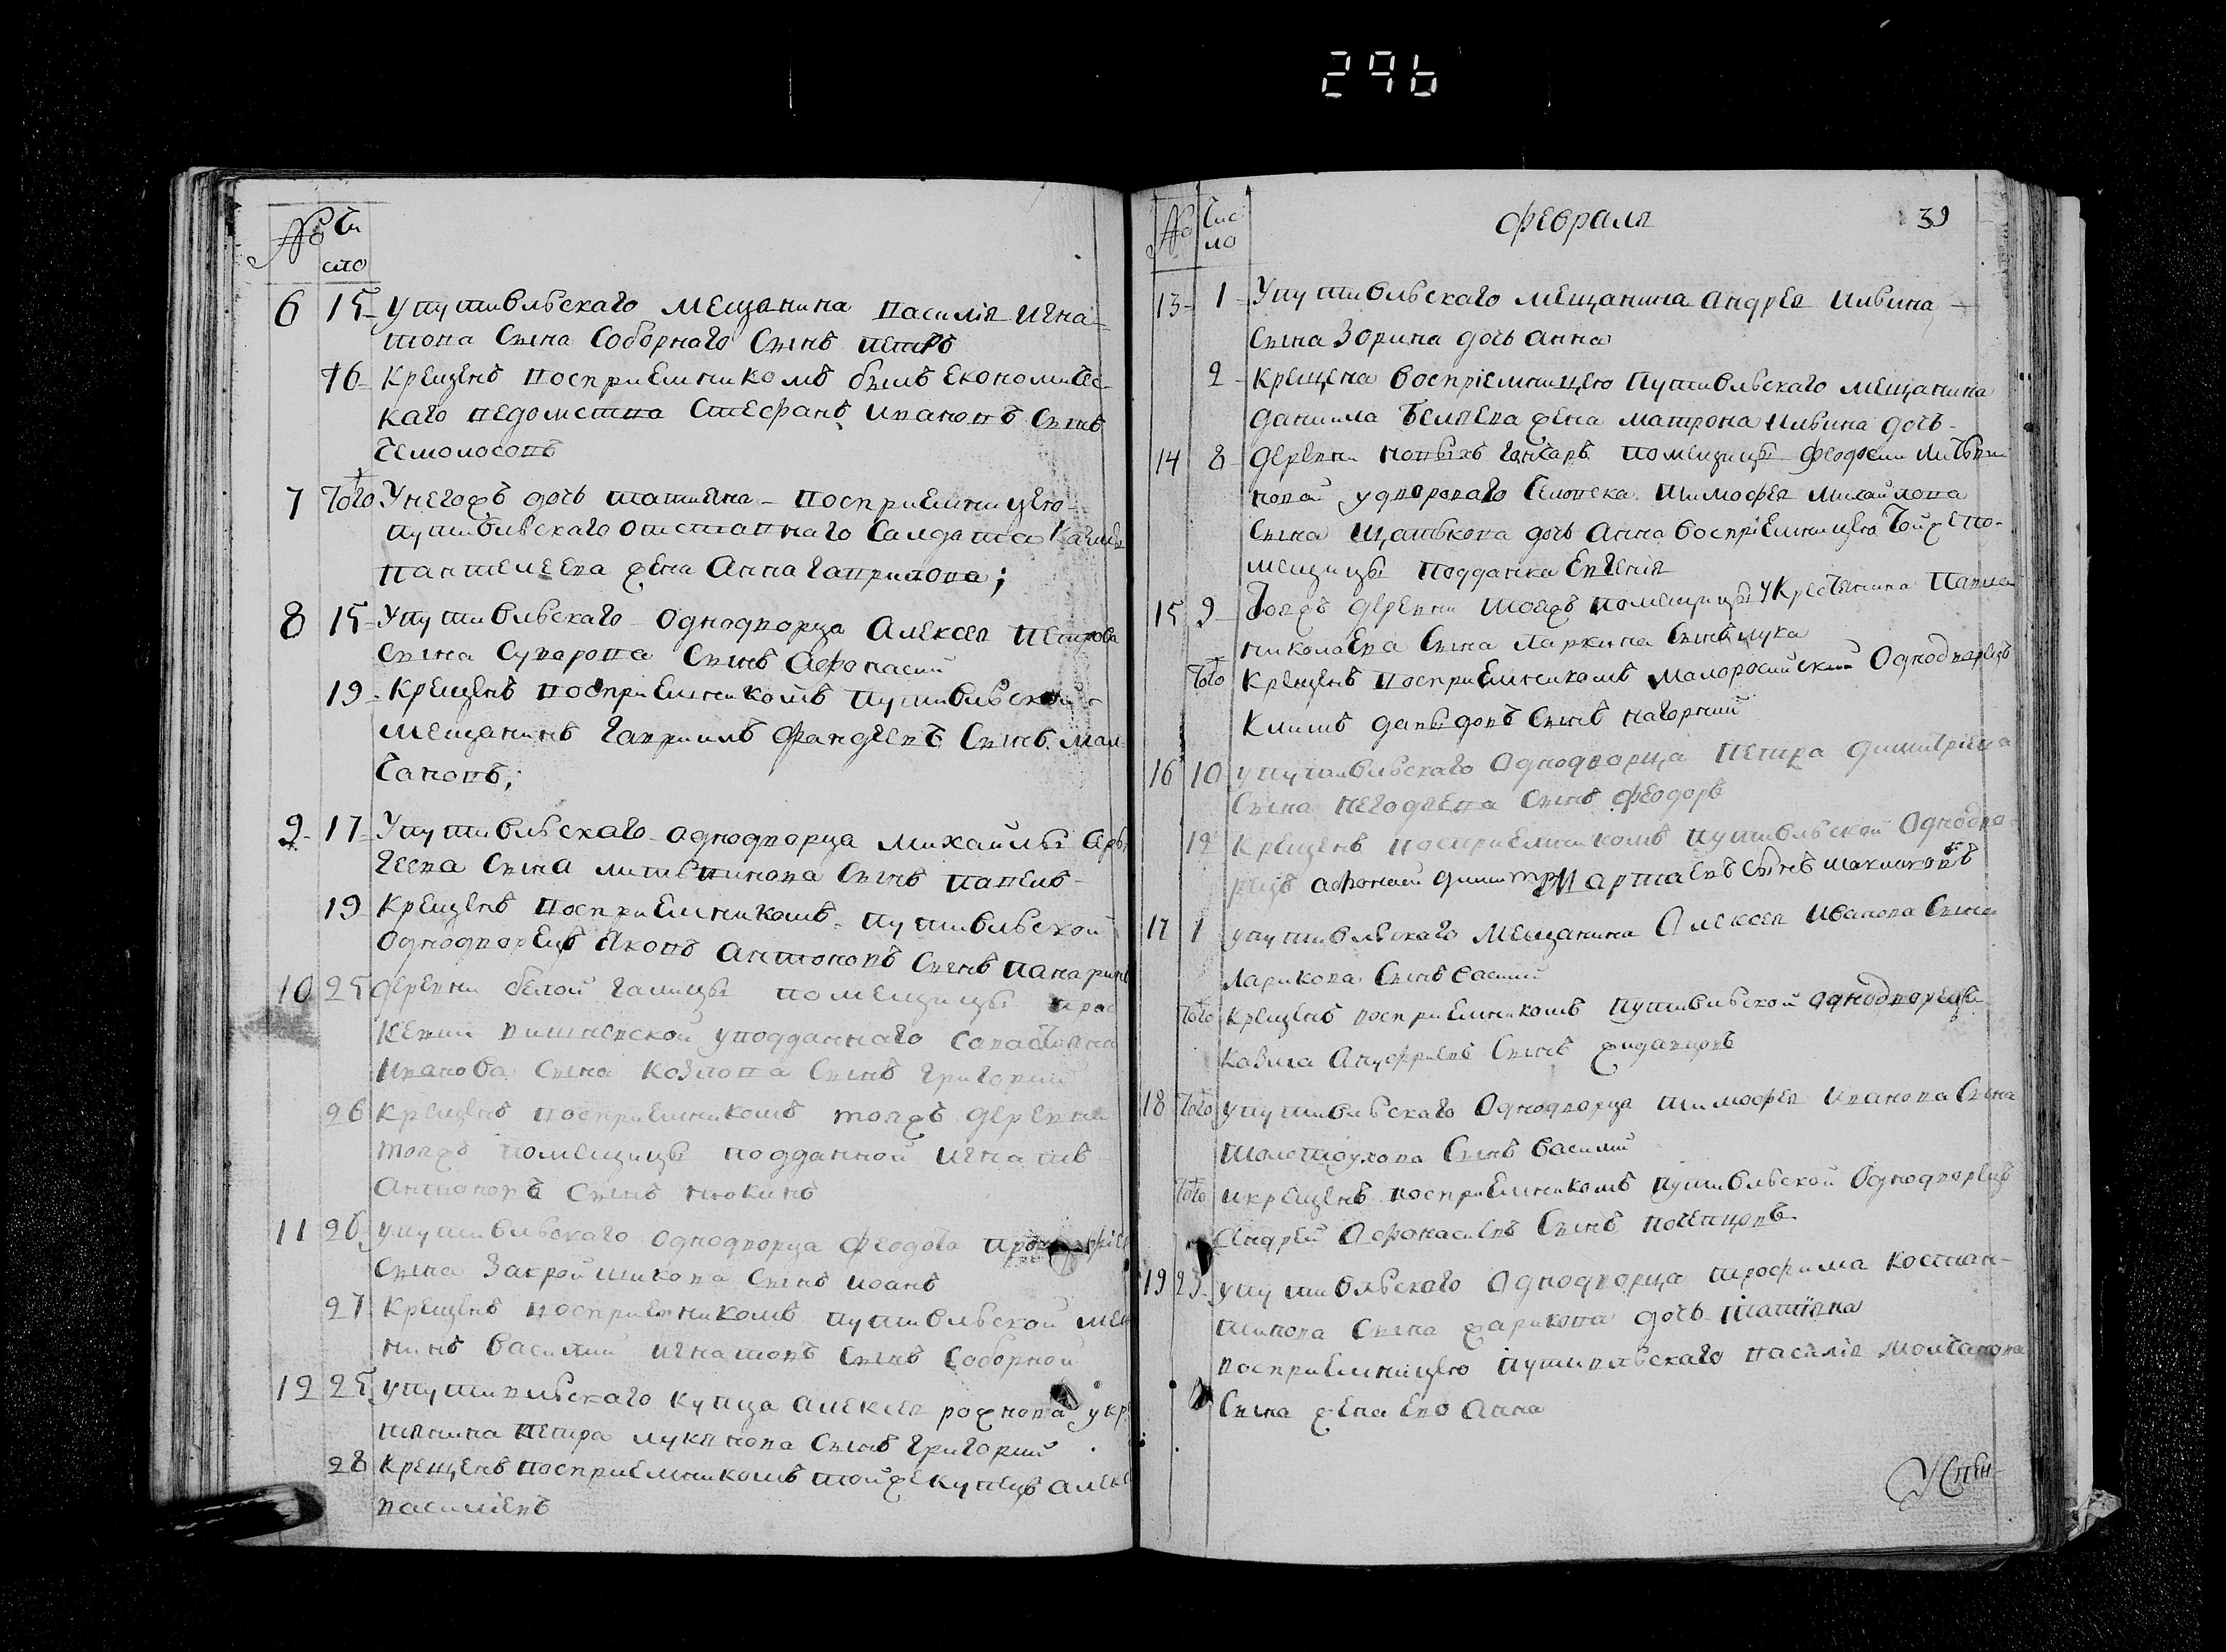 296
№ Чи
сло
6 15 У путивльскаго мещанина василія игна
това сына Соборнаго сынъ петръ
16 Крещенъ восприемникомъ былъ економичес
каго ведомства Стефанъ ивановъ сынъ
Чемолосовъ
7 Того У негожъ дочь татияна восприемницею
путивльскаго отставнаго Салдата
пантелеева жена Анна гаврилова;
8 15 У путивльскаго однодворца Алексея петрова
сына Суварова сынъ Афонасий
19 Крещенъ восприемникомъ путивльской
мещанинъ гавриилъ Фандеевъ сынъ мал
чановъ;
9 17 У путивльскаго однодворца михайлы
геева сына литвинова сынъ павелъ
19 Крещенъ восприемникомъ путивльской
однодворецъ Яковъ антоновъ сынъ панарин
10 25 деревни белой галицы помещицы прас
кевии вишневской у подданнаго
иванова сына козлова сынъ григорий
26 Крещенъ восприемникомъ тояжъ деревни
тояжъ помещицы подданной игнатъ
антоновъ сынъ
11 26 у путивльскаго однодворца феодота
сына Закройшикова сынъ иоанъ
27 Крещенъ восприемникомъ путивльской мещ
нинъ василий игнатовъ сынъ соборной
12 25 у путивльскаго купца алексея рожнова у кр
тянина петра лукянова сынъ григорий
28 Крещенъ восприемникомъ тойже купецъ алек
василіевъ
№ Чис
ло
Февраля
39
13 1 У путивльскаго мещанина андрея ильина
сына Зорина дочь анна
2 крещена восприемницею путивльскаго мещанина
даниила беляева жена матрона ильина дочь
14 8 деревни новыхъ гончаръ помещицы феодосии литви
новой у двороваго человека тимофея михайлова
сына Щатькова дочь Анна восприемницею тойже по
мещицы подданка Евгения
15 9 Тояжъ деревни тояжъ помещицы у крестянина павла
николаева сына ларкина сынъ лука
того Крещенъ восприемникомъ малоросийский однодворецъ
Климъ давыдовъ сынъ нагорний
16 10 у путивльскаго однодворца петра димитріева
сына негодяева сынъ феодоръ
12 Крещенъ восприемникомъ путивльской однодво
рецъ афонасий
17 1 у путивльскаго мещанина Алексея иванова сына
ларикова сынъ
того крещенъ восприемникомъ путивльской однодворецъ
Казма Ануфриевъ сынъ жидавцовъ
18 того у путивльскаго однодворца тимофея иванова сына
толстоухова сынъ василий
того и крещенъ восприемникомъ путивльской однодворецъ
Андрей Афонасиевъ сынъ
19 23 у путивльскаго однодворца трофима костан
тинова сына жарикова дочь татіяна
восприемницею путивльскаго василія молчанова
сына жена ево анна
Успен